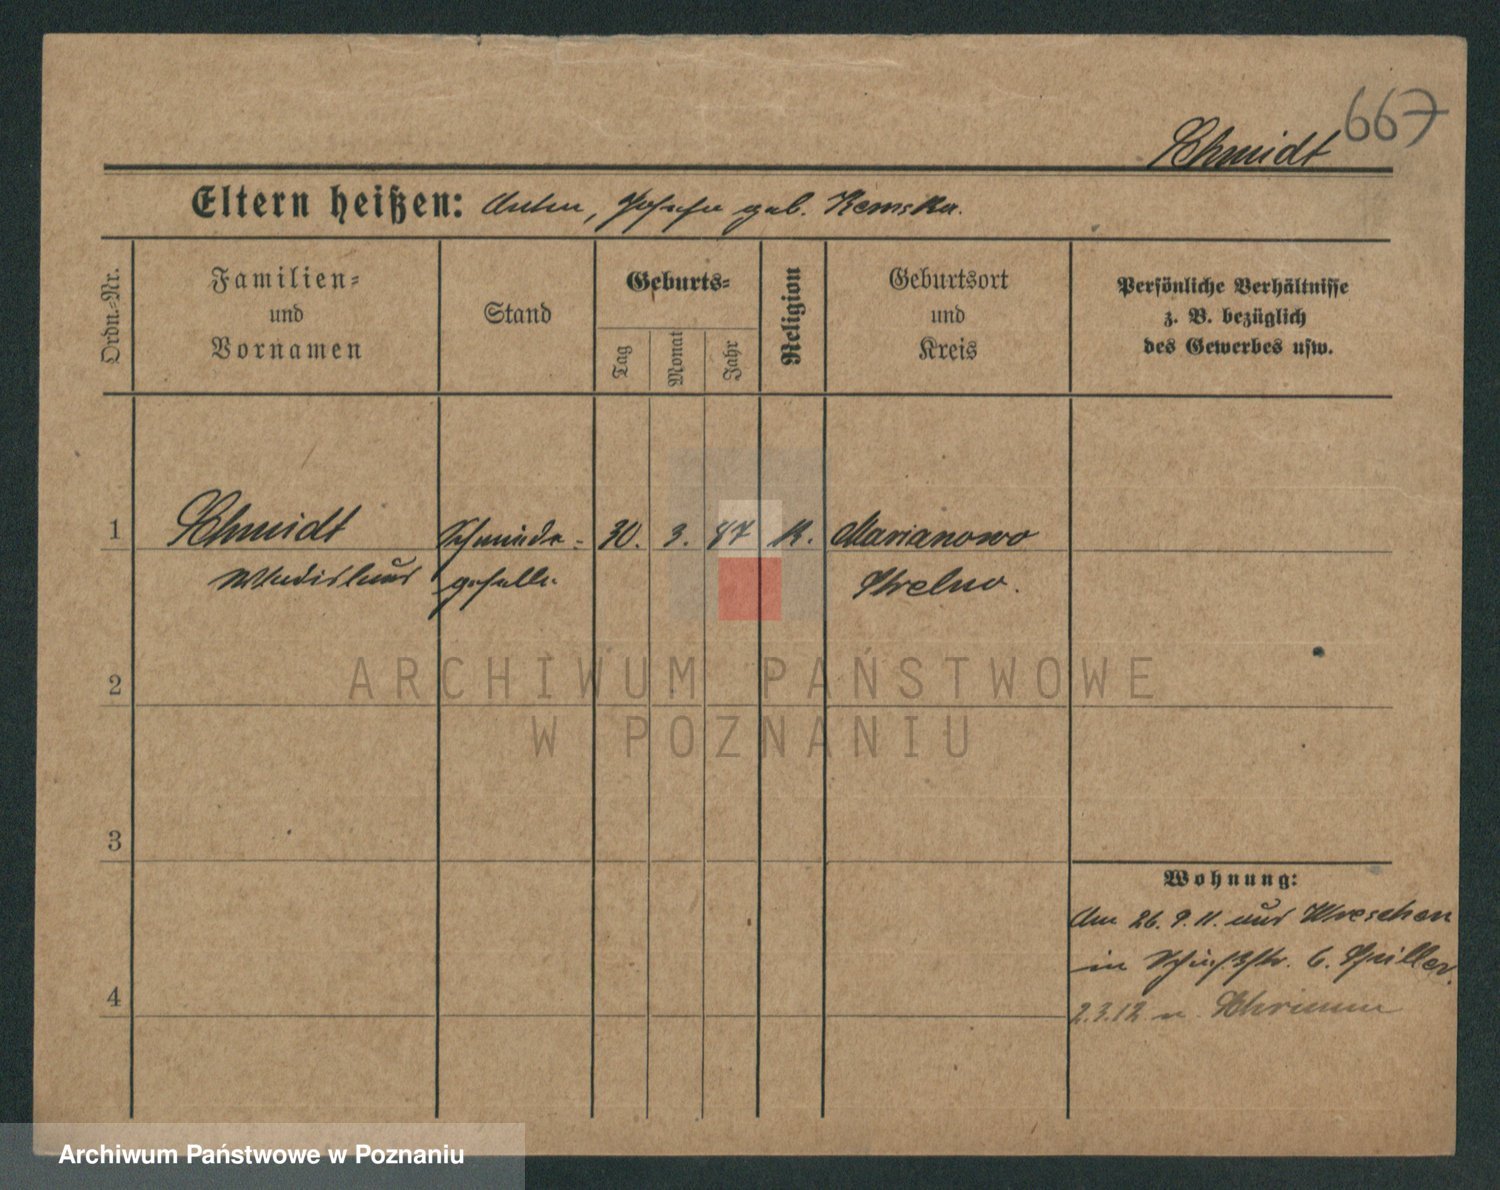 667
Schmidt
Eltern heißen: Anton, Josefa geb. Kemska.
Ordn.-Nr.
Familien-
und
Vornamen
Stand
Geburts-
Tag
Monat
Jahr
Religion
Geburtsort
und
Kreis
Persönliche Verhältnisse
z. B. bezüglich
des Gewerbes usw.
1 Schmidt Schmiede- 30. 3. 87 K. Marianowo
Wladislaus geselle Strelno.
ARCHIWUM PAŃSTWOWE
W POZNANIU
2
3
Wohnung:
Am 26. 9. 11. aus Wreschen
in 6. Spiller.
4
2.3.12 n. Schrimm
Archiwum Państwowe w Poznaniu